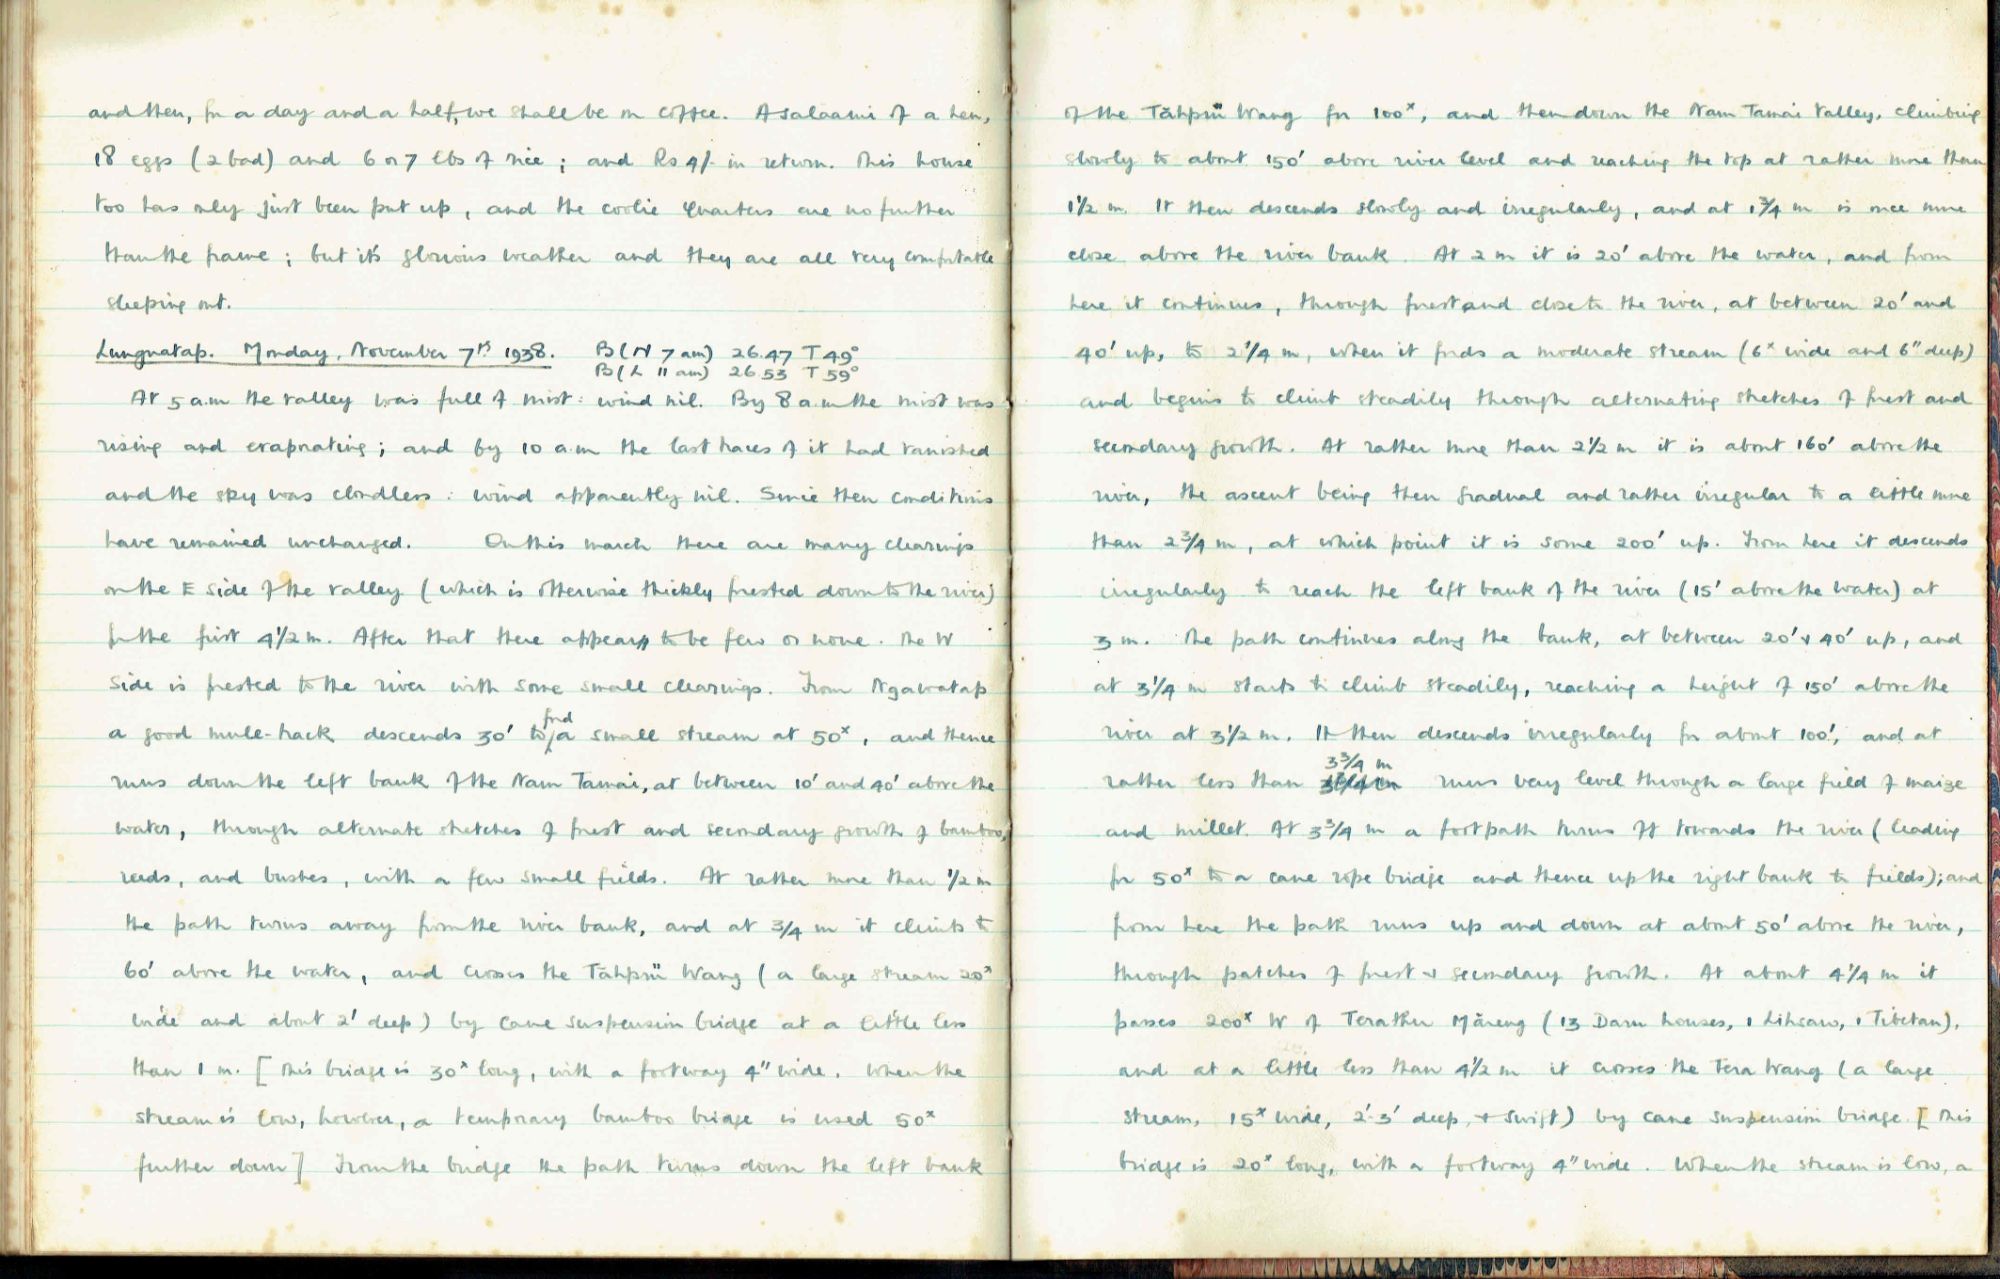 and then, for a day and a half, we shall be on coffee. A salaami of a hen,
18 eggs (2 bad) and 6 or 7 lbs of rice; and Rs 4/- in return. This house
too has only just been put up, and the coolie quarters are no further
than the frame; but it's glorious weather and they are all very comfortable
sleeping out.
Lungnatap. Monday, November 7th 1938. B (N 7 am) 26.47 T 49°
B (L 11 am) 26.53 T 59°
At 5 a.m the valley was full of mist: wind nil. By 8 a.m the mist was
rising and evaporating; and by 10 a.m the last traces of it had vanished
and the sky was cloudless: wind apparently nil. Since then conditions
have remained unchanged. On this march there are many clearings
on the E side of the valley (which is otherwise thickly forested down to the river)
for the first 4½ m. After that there appear to be few or none. The W
side is forested to the river with some small clearings. From Ngawatap
a good mule-track descends 30' to ford a small stream at 50ˣ, and thence
runs down the left bank of the Nam Tamai, at between 10' and 40' above the
water, through alternate stretches of forest and secondary growth of bamboo,
reeds, and bushes, with a few small fields. At rather more than ½ m
the path turns away from the river bank, and at ¾ m it climbs to
60' above the water, and crosses the Tăhprü Wang (a large stream 20ˣ
wide and about 2' deep) by cane suspension bridge at a little less
than 1 m. [This bridge is 30ˣ long, with a footway 4" wide. When the
stream is low, however, a temporary bamboo bridge is used 50ˣ
further down] From the bridge the path turns down the left bank
of the Tăhprü Wang for 100ˣ, and then down the Nam Tamai Valley, climbing
slowly to about 150' above river level and reaching the top at rather more than
1½ m. It then descends slowly and irregularly, and at 1¾ m is once more
close above the river bank. At 2 m it is 20' above the water, and from
here it continues, through forest and close to the river, at between 20' and
40' up, to 2¼ m, when it fords a moderate stream (6ˣ wide and 6" deep)
and begins to climb steadily through alternating stretches of forest and
secondary growth. At rather more than 2½ m it is about 160' above the
river, the ascent being then gradual and rather irregular to a little more
than 2¾ m, at which point it is some 200' up. From here it descends
irregularly to reach the left bank of the river (15' above the water) at
3 m. The path continues along the bank, at between 20' & 40' up, and
at 3¼ m starts to climb steadily, reaching a height of 150' above the
river at 3½ m. It then descends irregularly for about 100', and at
rather less than 3¾ m runs very level through a large field of maize
and millet. At 3¾ m a footpath turns off towards the river (leading
for 50ˣ to a cane rope bridge and thence up the right bank to fields); and
from here the path runs up and down at about 50' above the river,
through patches of forest & secondary growth. At about 4¼ m it
passes 200ˣ W of Terathu Măreng (13 Daru houses, 1 Lihsaw, 1 Tibetan),
and at a little less than 4½ m it crosses the Tera Wang (a large
stream, 15ˣ wide, 2'-3' deep, & swift) by cane suspension bridge. [This
bridge is 20ˣ long, with a footway 4" wide. When the stream is low, a